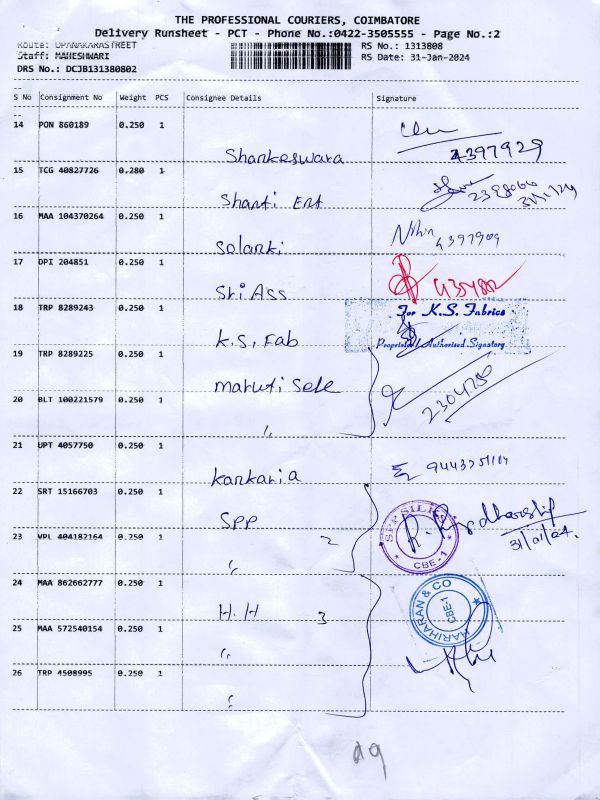 THE PROFESSIONAL COURIERS, COIMBATORE
Delivery Runsheet - PCT - Phone No.:0422-3505555 - Page No.:2
Route: OPANAKARASTREET
RS No.: 1313808
Staff: MAHESHWARI
RS Date: 31-Jan-2024
DRS No.: DCJB131380802
S No Consignment No Weight PCS Consignee Details Signature
14 PON 860189 0.250 1
Shankeswara 4397929
15 TCG 40827726 0.280 1
Shanti Ent
16 MAA 104370264 0.250 1
Solanki Nithin 4397909
17 DPI 204851 0.250 1
Sri.Ass
18 TRP 8289243 0.250 1
For K.S. Fabrics
K.S. Fab
Proprietor / Authorised Signatory
19 TRP 8289225 0.250 1
maruti Sele
20 BLT 100221579 0.250 1
2304750
"
21 UPT 4057750 0.250 1
Kankaria
22 SRT 15166703 0.250 1
SPP
SPP SILKS
CBE-1
31/01/24.
23 VPL 404182164 0.250 1
2
"
24 MAA 862662777 0.250 1
H.H 3
HARIHARAN & CO
CBE-1
25 MAA 572540154 0.250 1
"
26 TRP 4508995 0.250 1
"